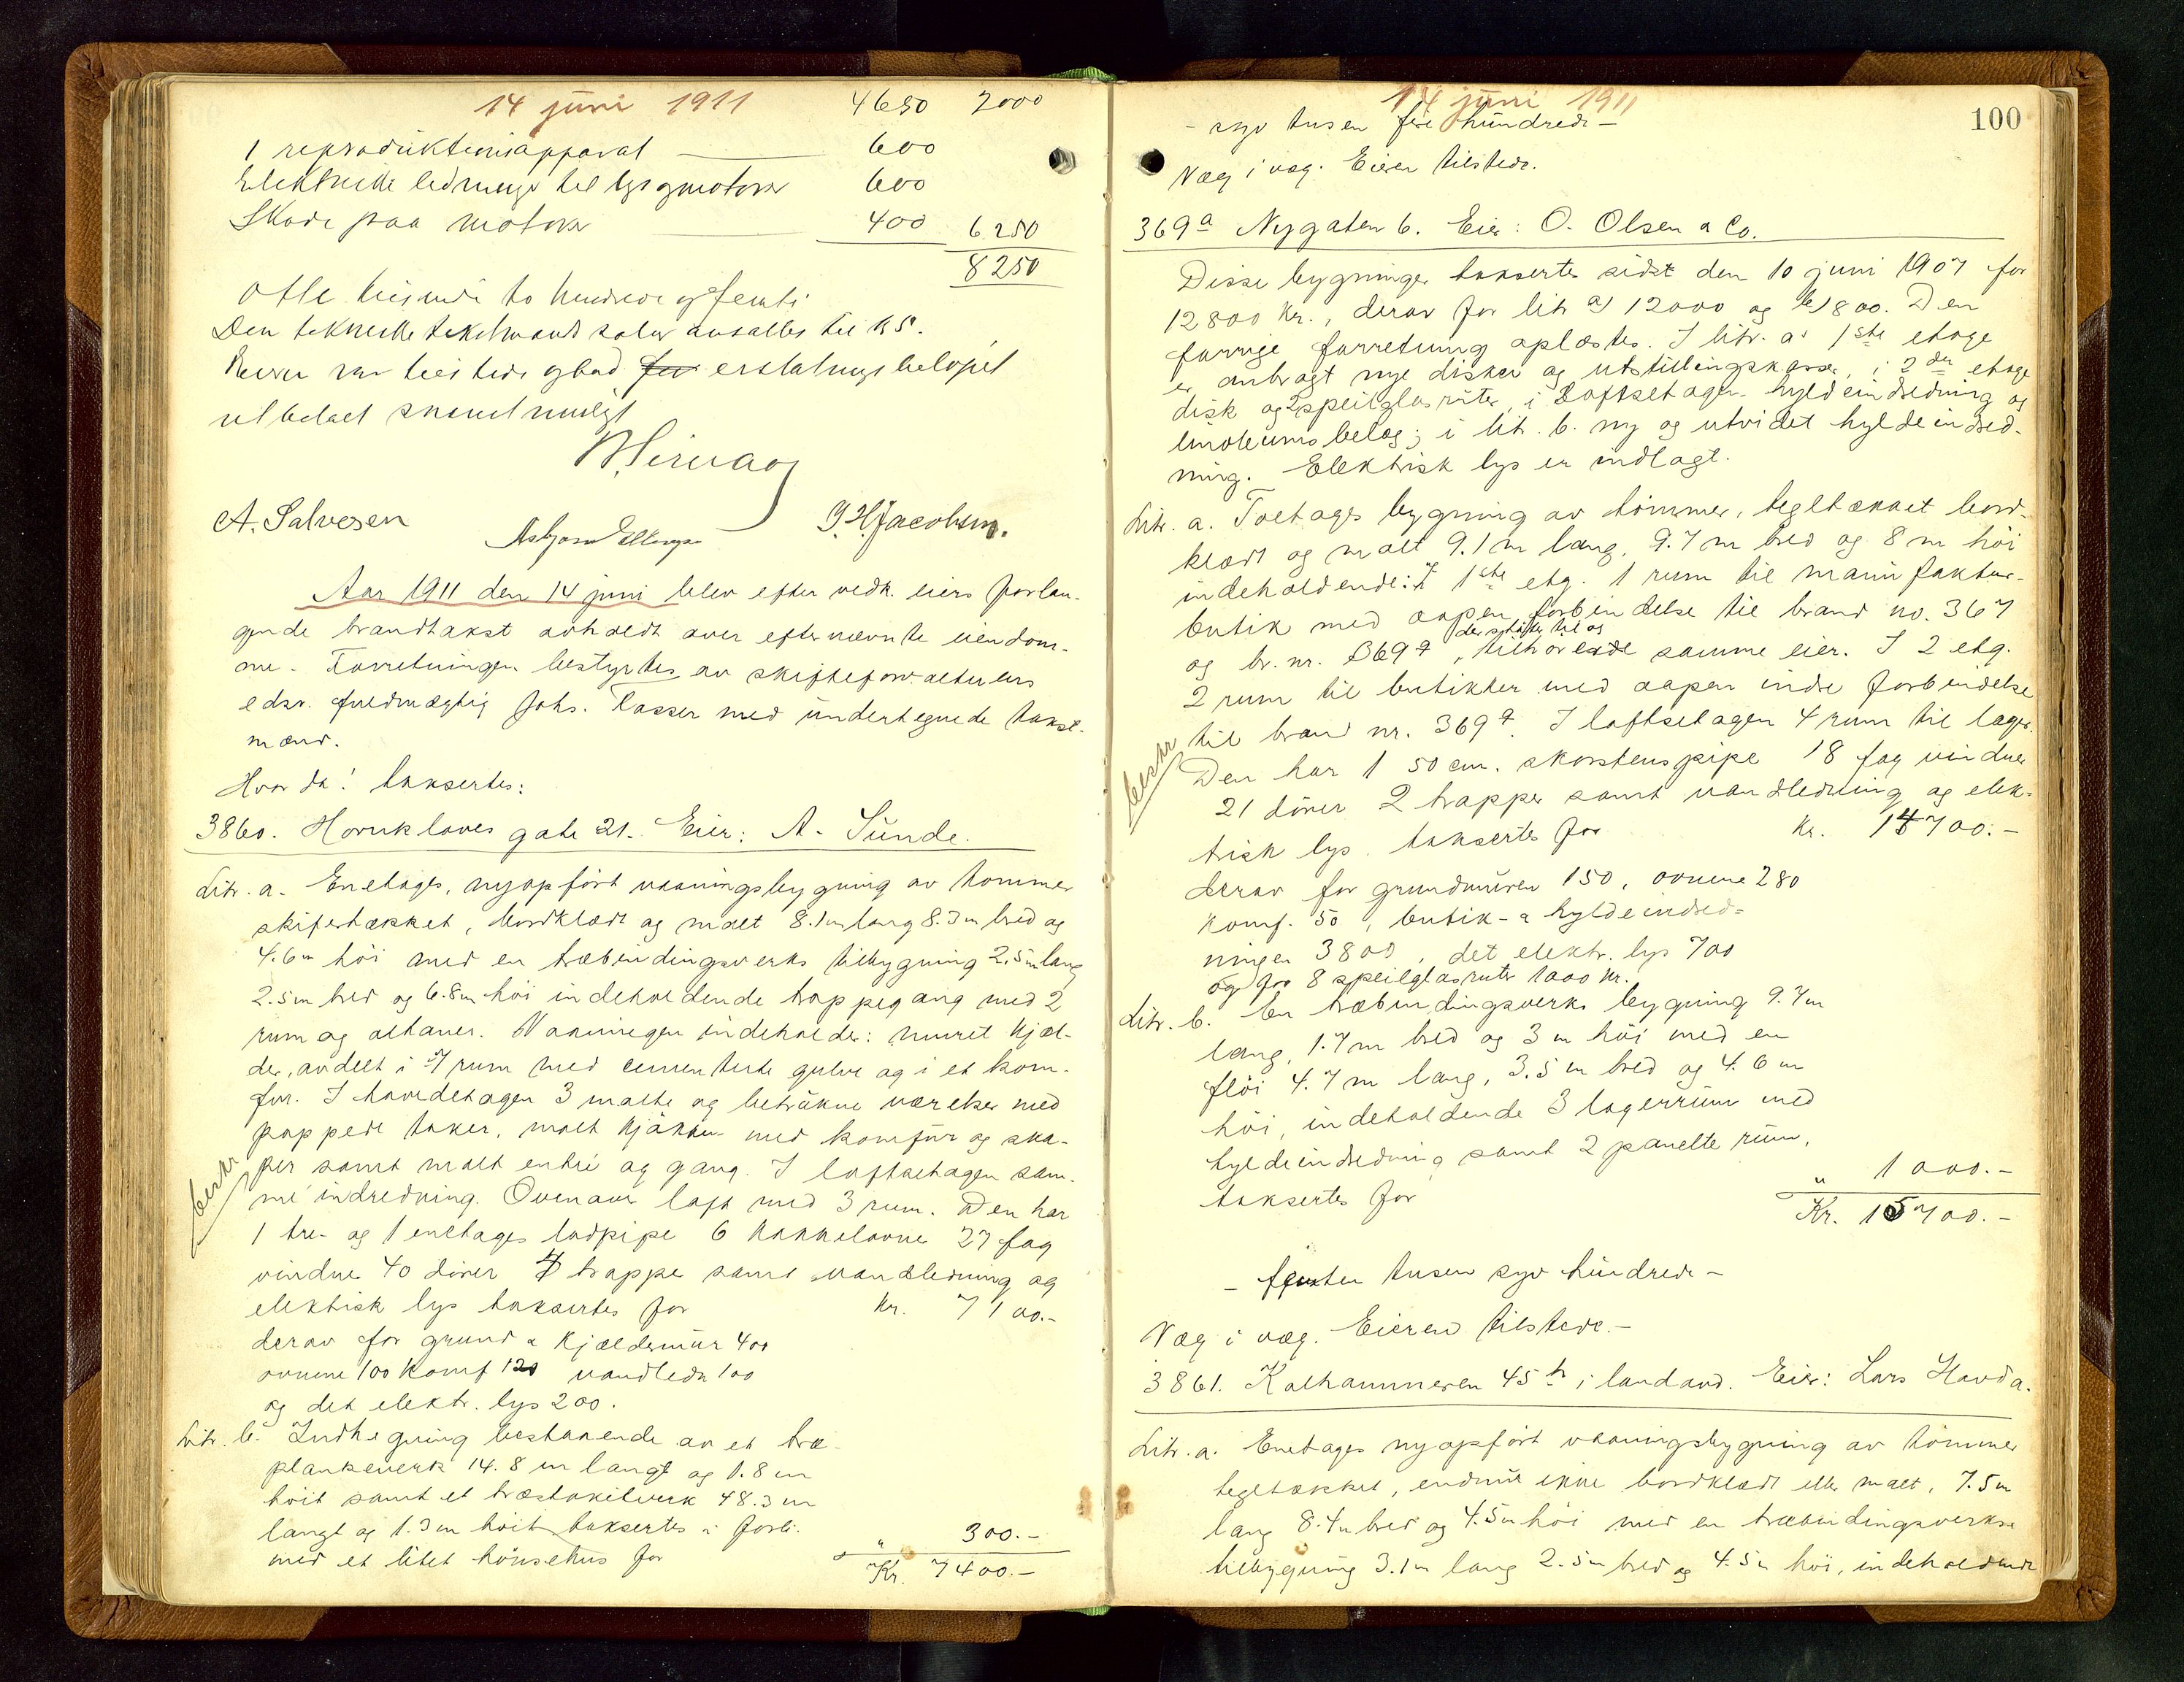 14 juni 1911 4650 2000
1 reproduktionsapparat 600
Elektriske ledninger til lys og motorer 600
Skade paa motorer 400 6250
8250
Otte tusinde to hundrede og femti
Den tekniske takstmands salær ansattes til 15.
Eieren var tilstede og bad for erstatningsbeløpet
utbetalt snarest muligt
A. Salvesen J. H. Jacobsen.
Aar 1911 den 14 juni blev efter vedk. eiers forlan-
gende brandtakst avholdt over efternævnte eiendom-
me. Forretningen bestyrtes av skifteforvalterens
edsv. fuldmægtig Johs. med undertegnede takst-
mænd.
Hvorda! taksertes:
3860. Hornkloves gate 21. Eier: A. Sunde.
Litr. a. Enetages, nyopført vaaningsbygning av tømmer
skifertækket, bordklædt og malt 8.1 m lang 8.3 m bred og
4.6 m høi med en træbindingsverks tilbygning 2.5 m lang
2.5 m bred og 6.8 m høi indeholdende trappegang med 2
rum og altaner. Vaaningen indeholder: muret kjæl-
der, avdelt i 7 rum med cementerte gulve og i et kom-
fur. I hovedetagen 3 malte og betrukne værelser med
pappede taker, malt kjøkken med komfur og ska-
per samt malt entré og gang. I loftsetagen sam-
me indredning. Ovenover loft med 3 rum. Den har
1 tre- og 1 enetages lodpipe 6 kakkelovne 27 fag
vinduer 40 dører 4 trapper samt vandledning og
elektrisk lys taksertes for Kr. 7100.-
derav for grund & kjældermur 400
ovnene 100 Komf 120 vandledn 100
og det elektr. lys 200.
Litr. b. Indhegning bestaaende av et træ-
plankeverk 14.8 m langt og 1.8 m
høit samt et træstakitverk 48.3 m
langt og 1.3 m høit taksertes i forb.
med et litet hønsehus for " 300.-
Kr. 7400.-
beskr
14 juni 1911
100
- syv tusen fire hundrede -
Væg i væg. Eieren tilstede.
369a Nygaten 6. Eier: O. Olsen & Co.
Disse bygninger taksertes sidst den 10 juni 1907 for
12800 Kr., derav for litr a) 12000 og b) 800. Den
forrige forretning oplæstes. I litr. a. 1ste etage
er anbragt nye disker og utstillingskasser, i 2den etage
disk og 2 speilglasruter, i Loftsetagen hyldeindredning og
linoleumsbelæg; i litr. b. ny og utvidet hyldeindred-
ning. Elektrisk lys er indlagt.
Litr. a. Toetages bygning av tømmer, tegltækket bord-
klædt og malt 9.1 m lang, 9.7 m bred og 8 m høi
indeholdende: I 1ste etg. 1 rum til manufaktur-
butik med aapen forbindelse til brand no. 367
der støter til og
og br. nr. 369 7, tilhørende samme eier. I 2 etg.
2 rum til butikker med aapen indre forbindelse
til brand nr. 369 7. I loftsetagen 4 rum til lager.
Den har 1 50 cm. skorstenspipe 18 fag vinduer
21 dører 2 trapper samt vandledning og elek-
trisk lys, taksertes for Kr. 14700.-
derav for grundmuren 150, ovnene 280
Komf. 50, butik- & hyldeindred-
ningen 3800, det elektr. lys 700
og for 8 speilglasruter 1000 kr.
Litr. b. En træbindingsverks bygning 9.7 m
lang, 1.7 m bred og 3 m høi med en
fløi 4.7 m lang, 3.5 m bred og 4.6 m
høi, indeholdende 3 lagerrum med
hyldeindredning samt 2 panelte rum,
taksertes for " 1000.-
Kr. 15700.-
- femten tusen syv hundrede -
Væg i væg. Eieren tilstede.-
3861. Kolhammeren 45h i landavd. Eier: Lars Havda.
Litr. a. Enetages nyopført vaaningsbygning av tømmer
tegltækket, endnu ikke bordklædt eller malt, 7.5 m
lang 8.4 m bred og 4.5 m høi med en træbindingsverks
tilbygning 3.1 m lang 2.5 m bred og 4.5 m høi, indeholdende
beskr